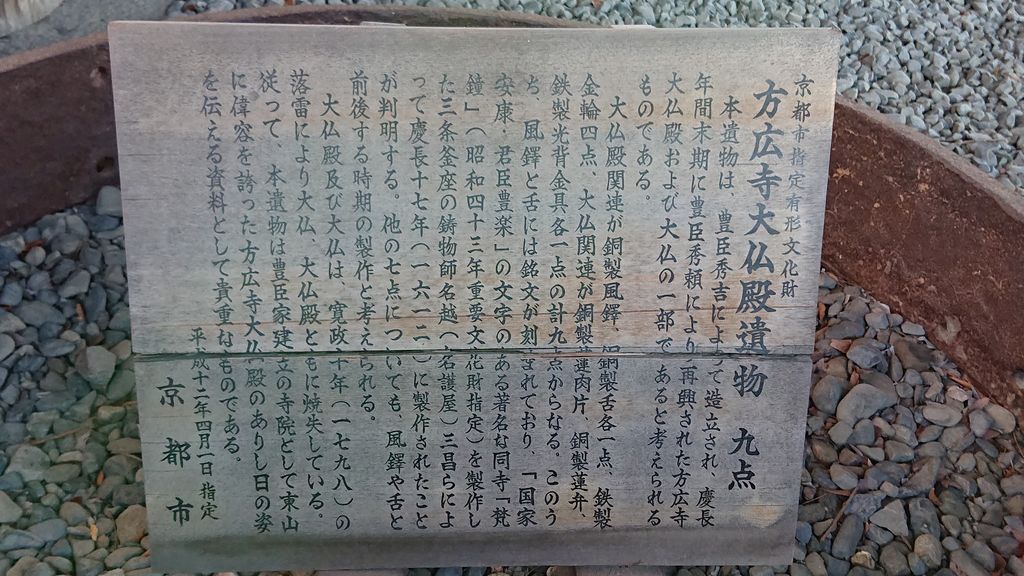 京都市指定有形文化財
方広寺大仏殿遺物 九点
本遺物は、豊臣秀吉によって造立され、慶長
年間末期に豊臣秀頼により再興された方広寺
大仏殿および大仏の一部であると考えられる
ものである。
大仏殿関連が銅製風鐸、銅製舌各一点、鉄製
金輪四点、大仏関連が銅製蓮肉片、銅製蓮弁、
鉄製光背金具各一点の計九点からなる。このう
ち、風鐸と舌には銘文が刻まれており、「国家
安康・君臣豊楽」の文字のある著名な同寺「梵
鐘」(昭和四十三年重要文化財指定)を製作し
た三条釜座の鋳物師名越(名護屋)三昌らによ
って慶長十七年(一六一二)に製作されたこと
が判明する。他の七点についても、風鐸や舌と
前後する時期の製作と考えられる。
大仏殿及び大仏は、寛政十年(一七九八)の
落雷により大仏、大仏殿ともに焼失している。
従って、本遺物は豊臣家建立の寺院として東山
に偉容を誇った方広寺大仏殿のありし日の姿
を伝える資料として貴重なものである。
平成十二年四月一日指定
京都市